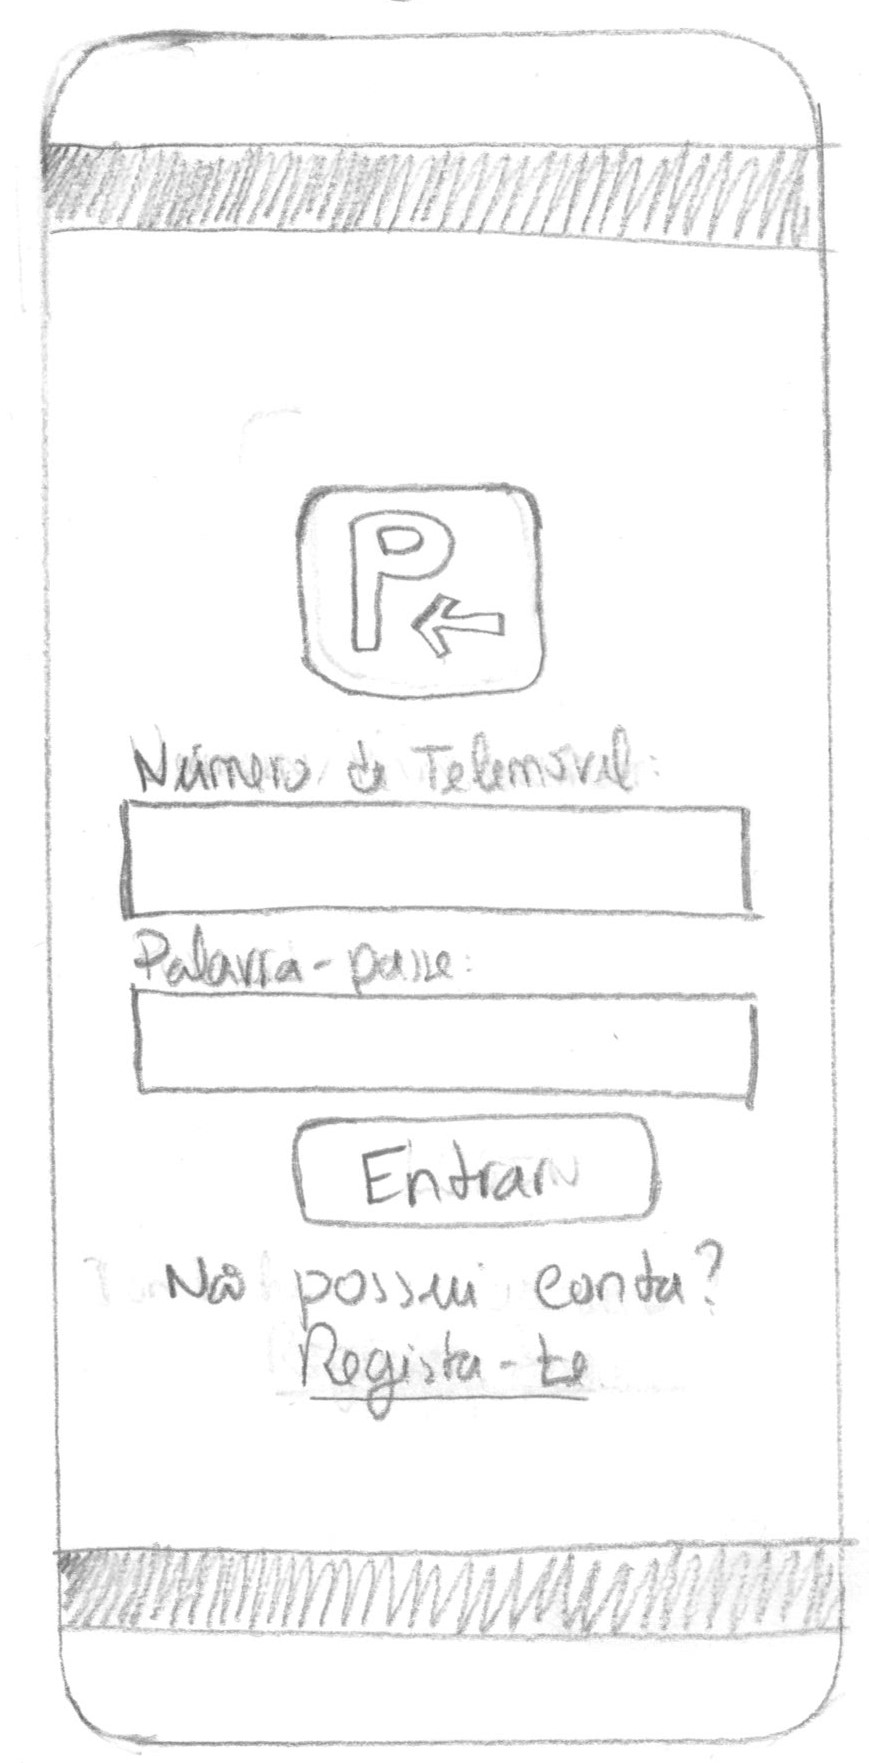 P
Número de Telemóvel:
Palavra-passe:
Entrar
Não possui conta?
Regista-te